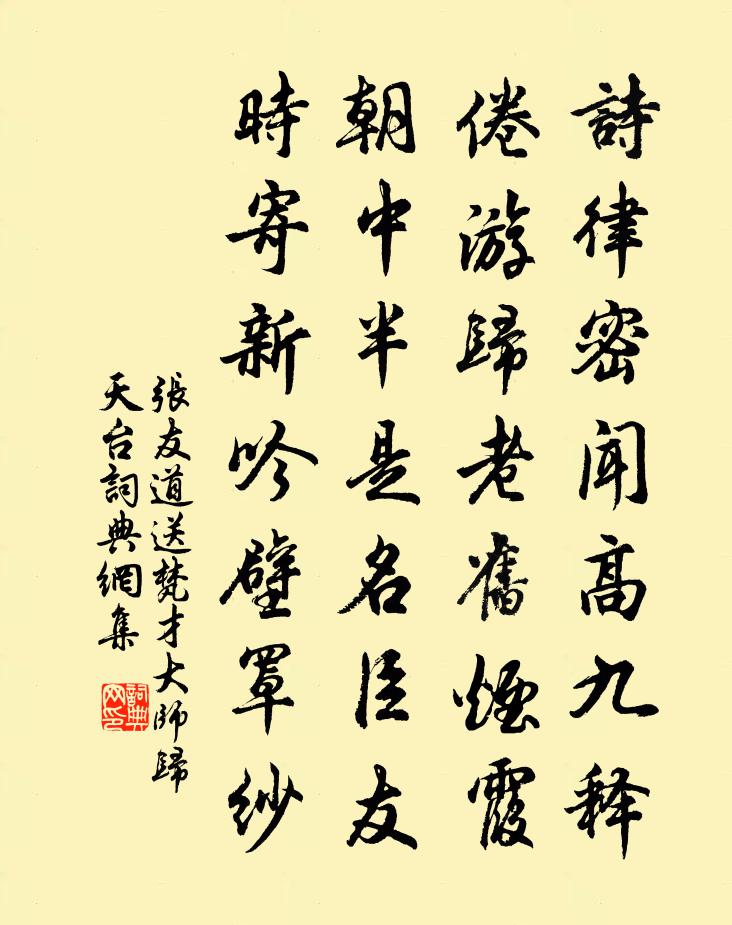 詩律密闻高九释
倦游歸老舊煙霞
朝中半是名臣友
時寄新吟壁罩紗
張友道送梵才大師歸
天台詞典網集
詞典网印